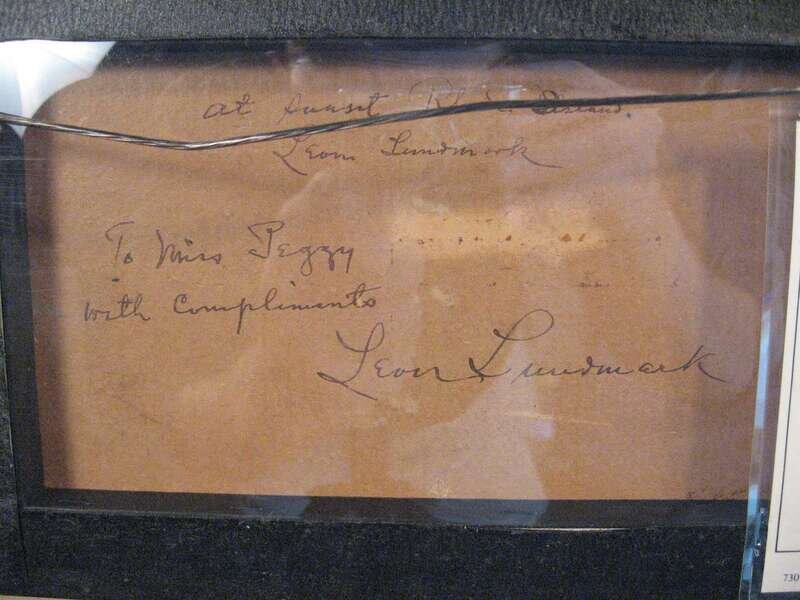 at sunset
Leon Lundmark
To Miss Peggy
with Compliments
Leon Lundmark
730